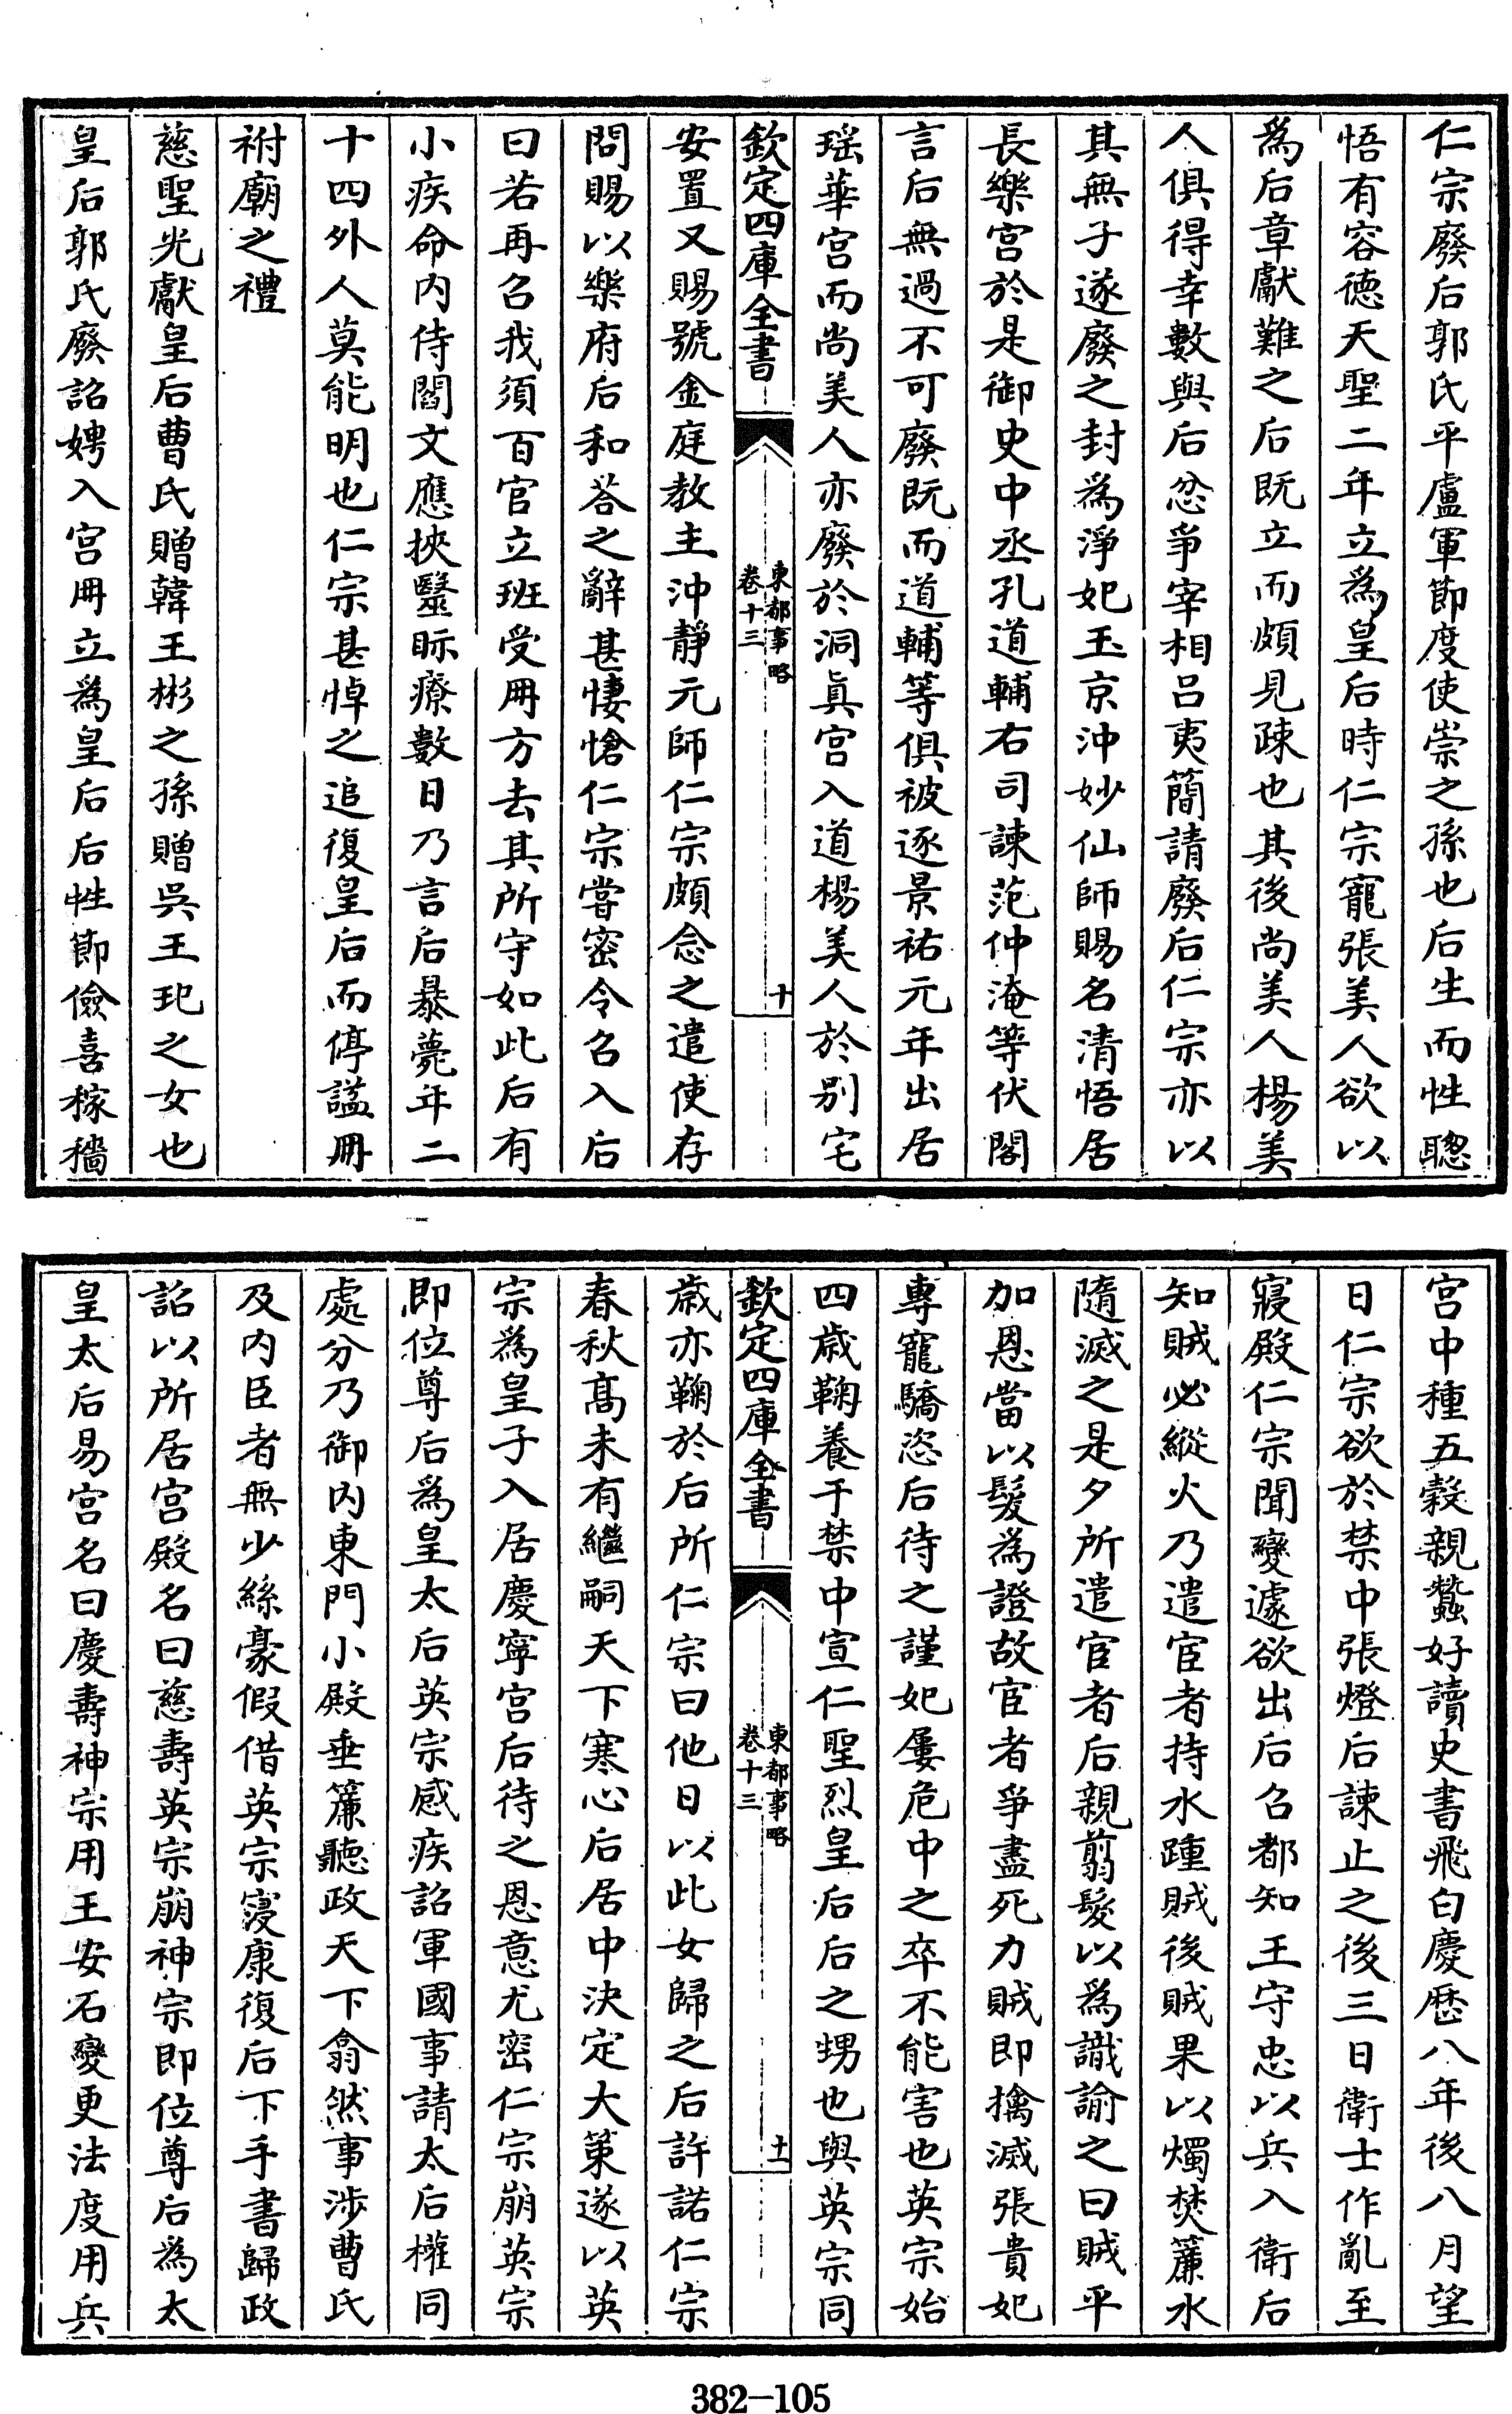 仁宗廢后郭氏平盧軍節度使崇之孫也后生而性聰
悟有容德天聖二年立為皇后時仁宗寵張美人欲以
為后章獻難之后既立而頗見疎也其後尚美人楊美
人俱得幸數與后忿爭宰相呂夷簡請廢后仁宗亦以
其無子遂廢之封為淨妃玉京沖妙仙師賜名清悟居
長樂宮於是御史中丞孔道輔右司諫范仲淹等伏閤
言后無過不可廢既而道輔等俱被逐景祐元年出居
瑤華宮而尚美人亦廢於洞眞宮入道楊美人於別宅
欽定四庫全書
東都事略
卷十三
十
安置又賜號金庭教主沖靜元師仁宗頗念之遣使存
問賜以樂府后和荅之辭甚悽愴仁宗嘗密令召入后
曰若再召我須百官立班受冊方去其所守如此后有
小疾命內侍閻文應挾醫眎療數日乃言后暴薨年二
十四外人莫能明也仁宗甚悼之追復皇后而停謚冊
祔廟之禮
慈聖光獻皇后曹氏贈韓王彬之孫贈吳王玘之女也
皇后郭氏廢詔娉入宮冊立為皇后后性節儉喜稼穡
宮中種五穀親蠶好讀史書飛白慶歷八年後八月望
日仁宗欲於禁中張燈后諫止之後三日衛士作亂至
寢殿仁宗聞變遽欲出后召都知王守忠以兵入衛后
知賊必縱火乃遣宦者持水踵賊後賊果以燭焚簾水
隨滅之是夕所遣宦者后親翦髮以為識諭之曰賊平
加恩當以髮為證故宦者爭盡死力賊即擒滅張貴妃
專寵驕恣后待之謹妃屢危中之卒不能害也英宗始
四歲鞠養于禁中宣仁聖烈皇后后之甥也與英宗同
欽定四庫全書
東都事略
卷十三
十一
歲亦鞠於后所仁宗曰他日以此女歸之后許諾仁宗
春秋高未有繼嗣天下寒心后居中決定大策遂以英
宗為皇子入居慶寧宮后待之恩意尤密仁宗崩英宗
即位尊后為皇太后英宗感疾詔軍國事請太后權同
處分乃御內東門小殿垂簾聽政天下翕然事涉曹氏
及內臣者無少絲豪假借英宗寖康復后下手書歸政
詔以所居宮殿名曰慈壽英宗崩神宗即位尊后為太
皇太后易宮名曰慶壽神宗用王安石變更法度用兵
382-105